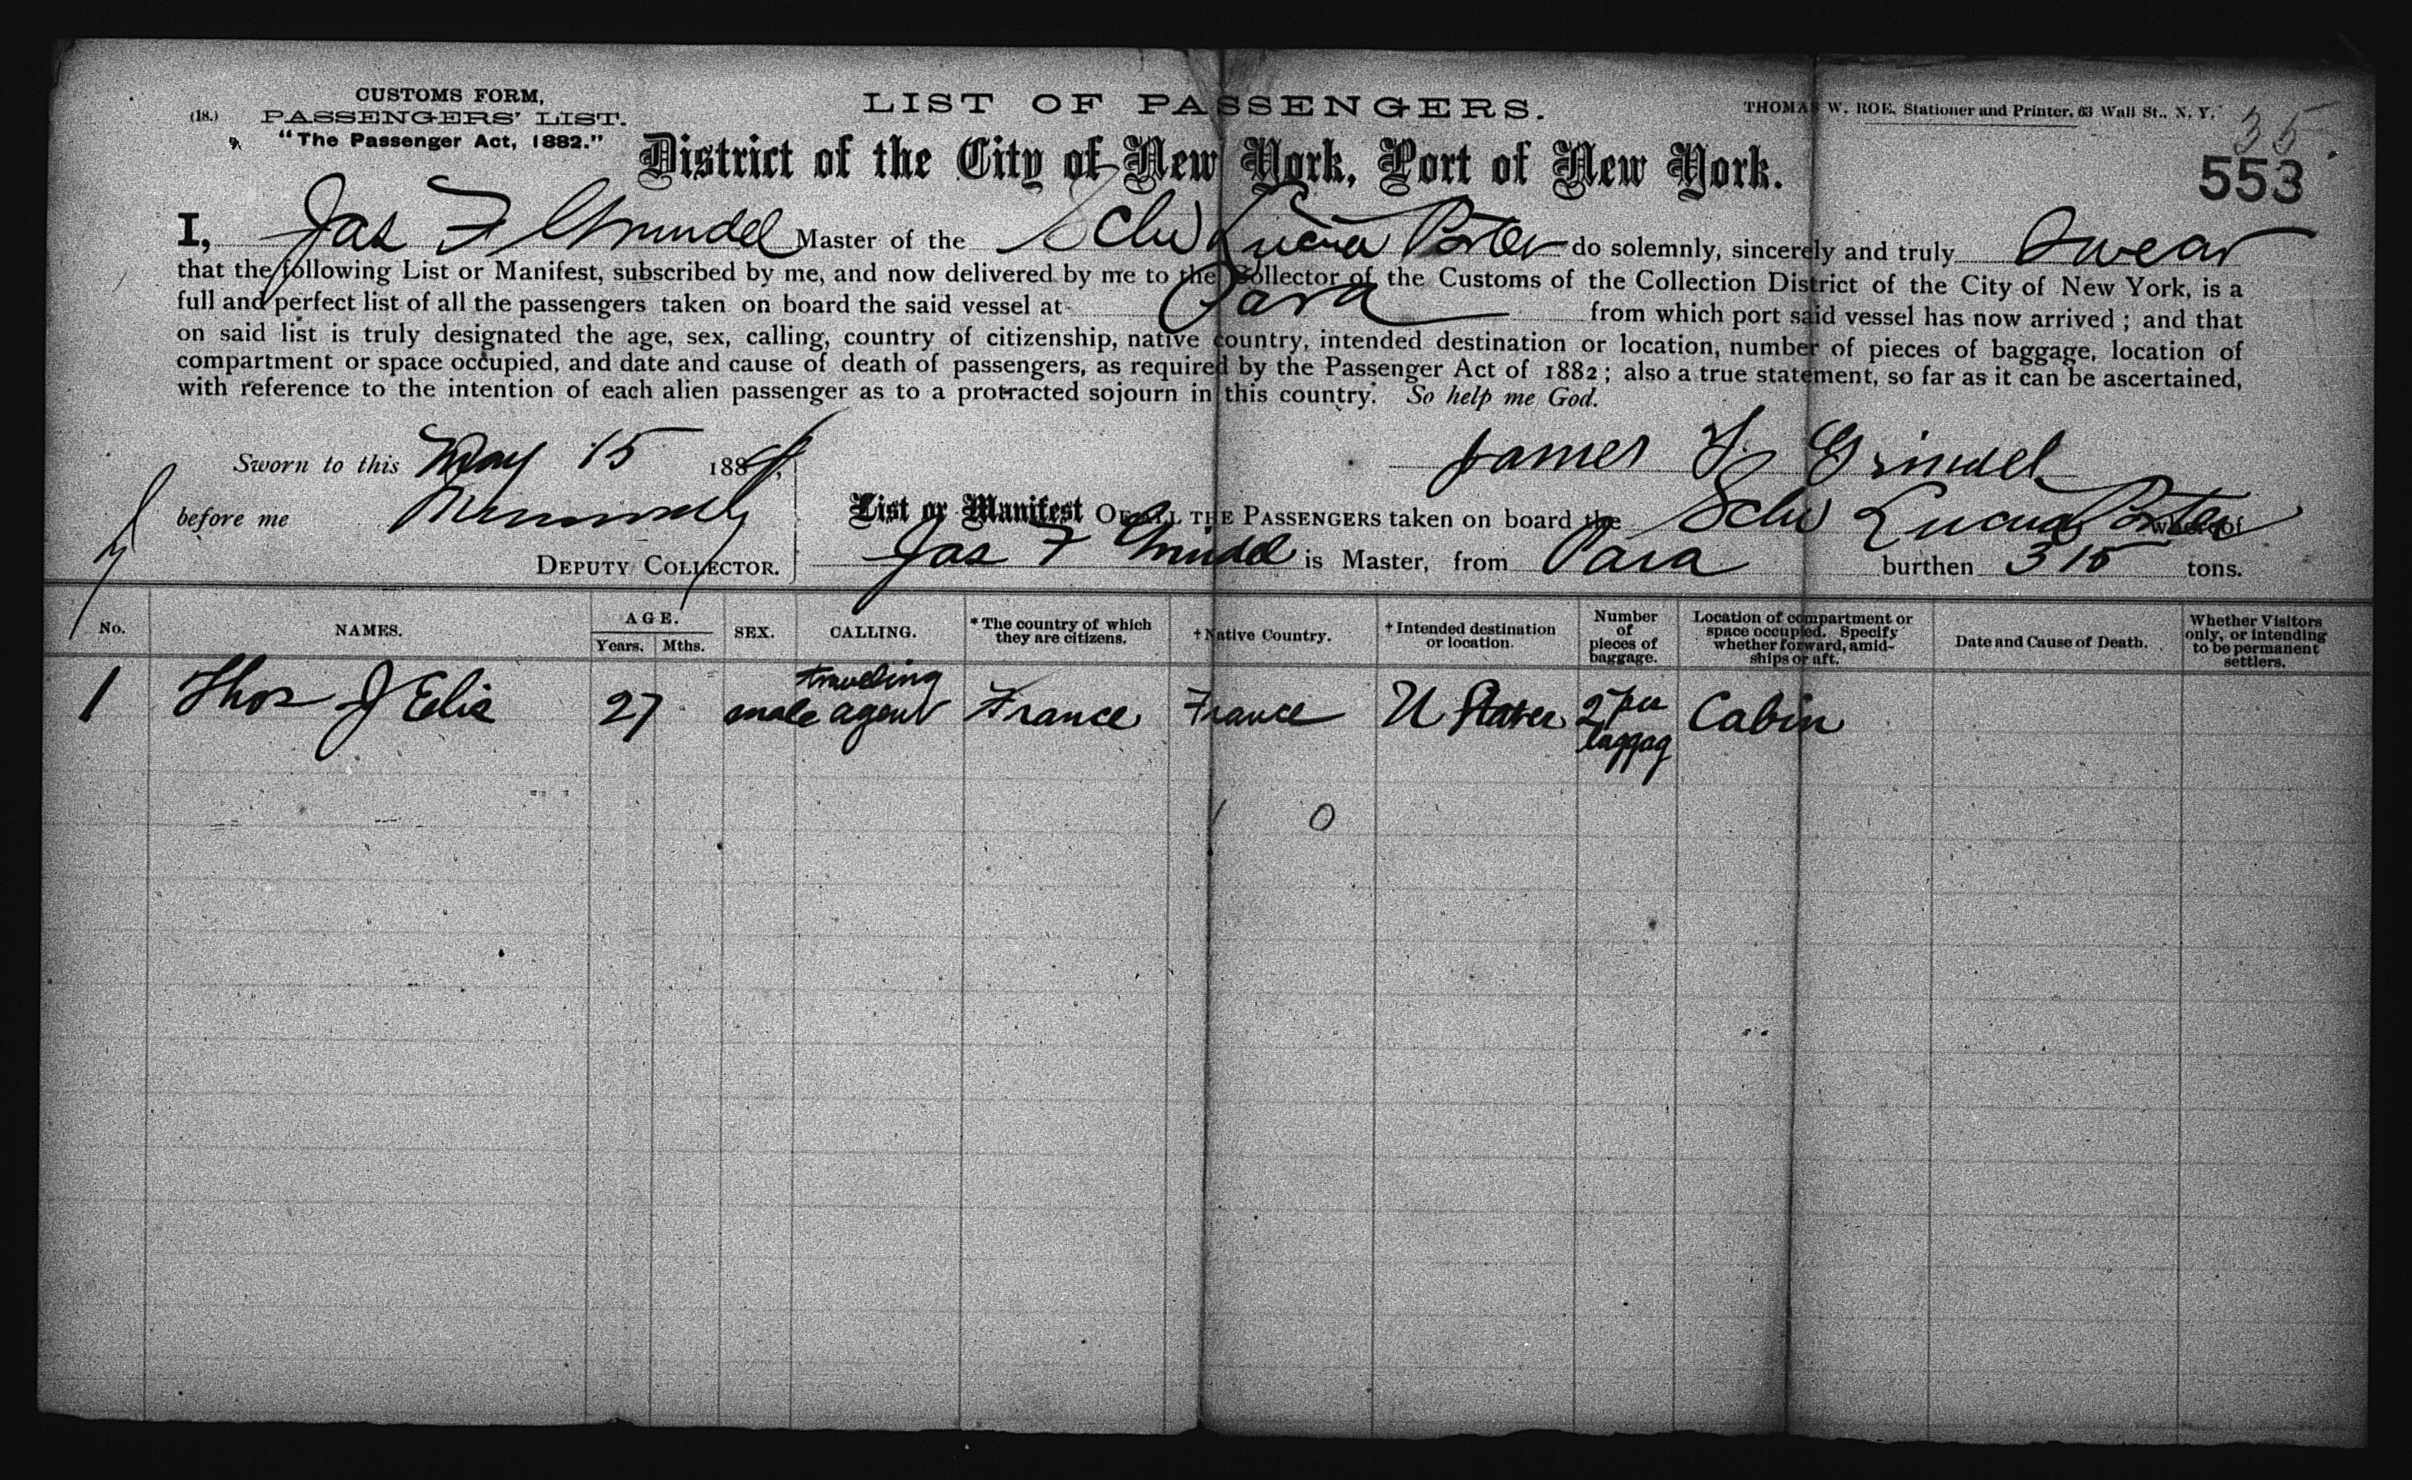 CUSTOMS FORM,
(18.) PASSENGERS' LIST.
"The Passenger Act, 1882."
LIST OF PASSENGERS.
THOMAS W. ROE, Stationer and Printer, 63 Wall St., N. Y.
35
553
District of the City of New York, Port of New York.
I, Jas F Grindel Master of the Schr Lucia Porter do solemnly, sincerely and truly Swear
that the following List or Manifest, subscribed by me, and now delivered by me to the Collector of the Customs of the Collection District of the City of New York, is a
full and perfect list of all the passengers taken on board the said vessel at Para from which port said vessel has now arrived; and that
on said list is truly designated the age, sex, calling, country of citizenship, native country, intended destination or location, number of pieces of baggage, location of
compartment or space occupied, and date and cause of death of passengers, as required by the Passenger Act of 1882; also a true statement, so far as it can be ascertained,
with reference to the intention of each alien passenger as to a protracted sojourn in this country. So help me God.
Sworn to this May 15 188
James F Grindel
before me
DEPUTY COLLECTOR.
List or Manifest OF ALL THE PASSENGERS taken on board the Schr Lucia Porter whereof
Jas F Grindel is Master, from Para burthen 315 tons.
No. NAMES. AGE. Years. Mths. SEX. CALLING. *The country of which they are citizens. †Native Country. †Intended destination or location. Number of pieces of baggage. Location of compartment or space occupied. Specify whether forward, amidships or aft. Date and Cause of Death. Whether Visitors only, or intending to be permanent settlers.
1 Thos J Elie 27 male traveling agent France France U States 2 baggag Cabin
1 0